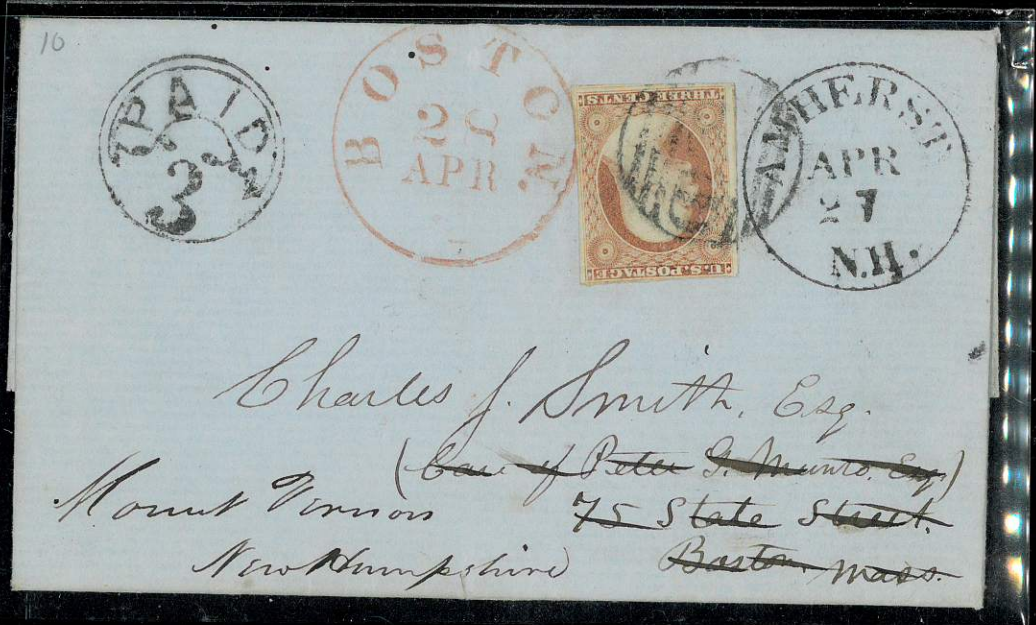 10
PAID
3
BOSTON
28
APR
THREE CENTS
U.S. POSTAGE
AMHERST
APR
27
N.H.
Charles J. Smith, Esq.
(Care of Peter G. Munro, Esq)
Mount Vernon
75 State Street.
New Hampshire
Boston Mass.